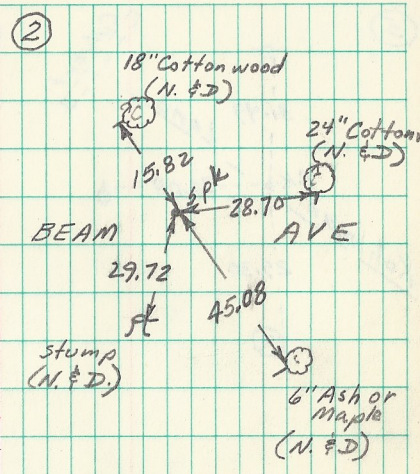 2
18" Cottonwood
(N. & D)
24" Cottonw
(N. & D)
15.82
spk
28.70
BEAM AVE
29.72
45.08
stump
(N. & D.)
6" Ash or
Maple
(N. & D)